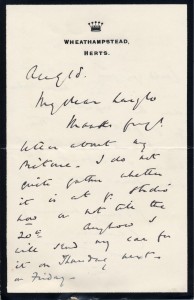 WHEATHAMPSTEAD,
HERTS.
Aug 18.
My dear
Thanks for yr.
letter about my
picture. I do not
quite gather whether
it is at yr. studio
now or not till the
20th. Anyhow I
will send my car for
it on Thursday next
or Friday.